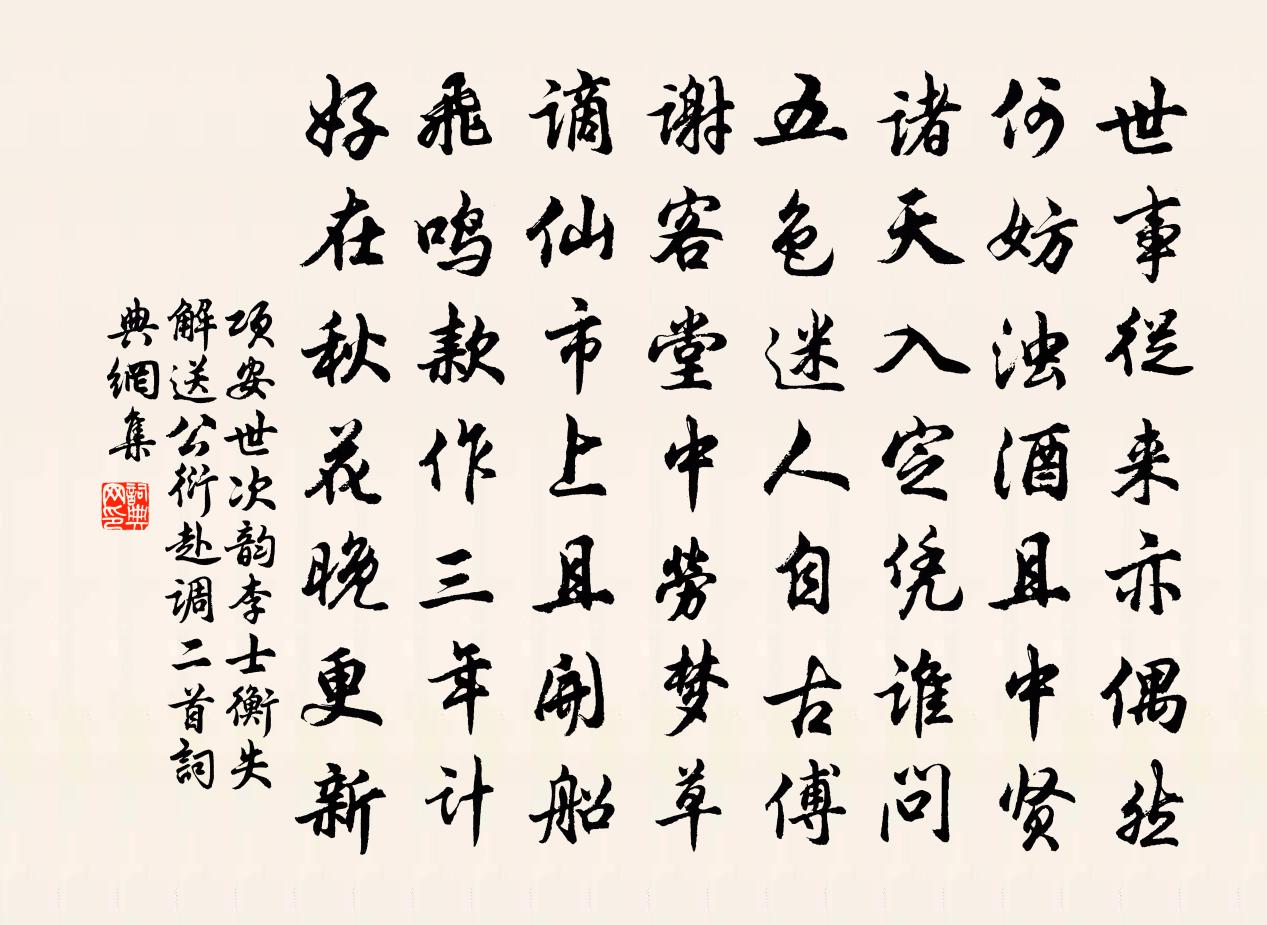 世事从来亦偶然
何妨浊酒且中贤
诸天入定凭谁问
五色迷人自古傅
谢客堂中劳梦草
谪仙市上且开船
飛鸣款作三年计
好在秋花晚更新
项安世次韵李士衡失
解送公衍赴调二首詞
典網集
詞典网印